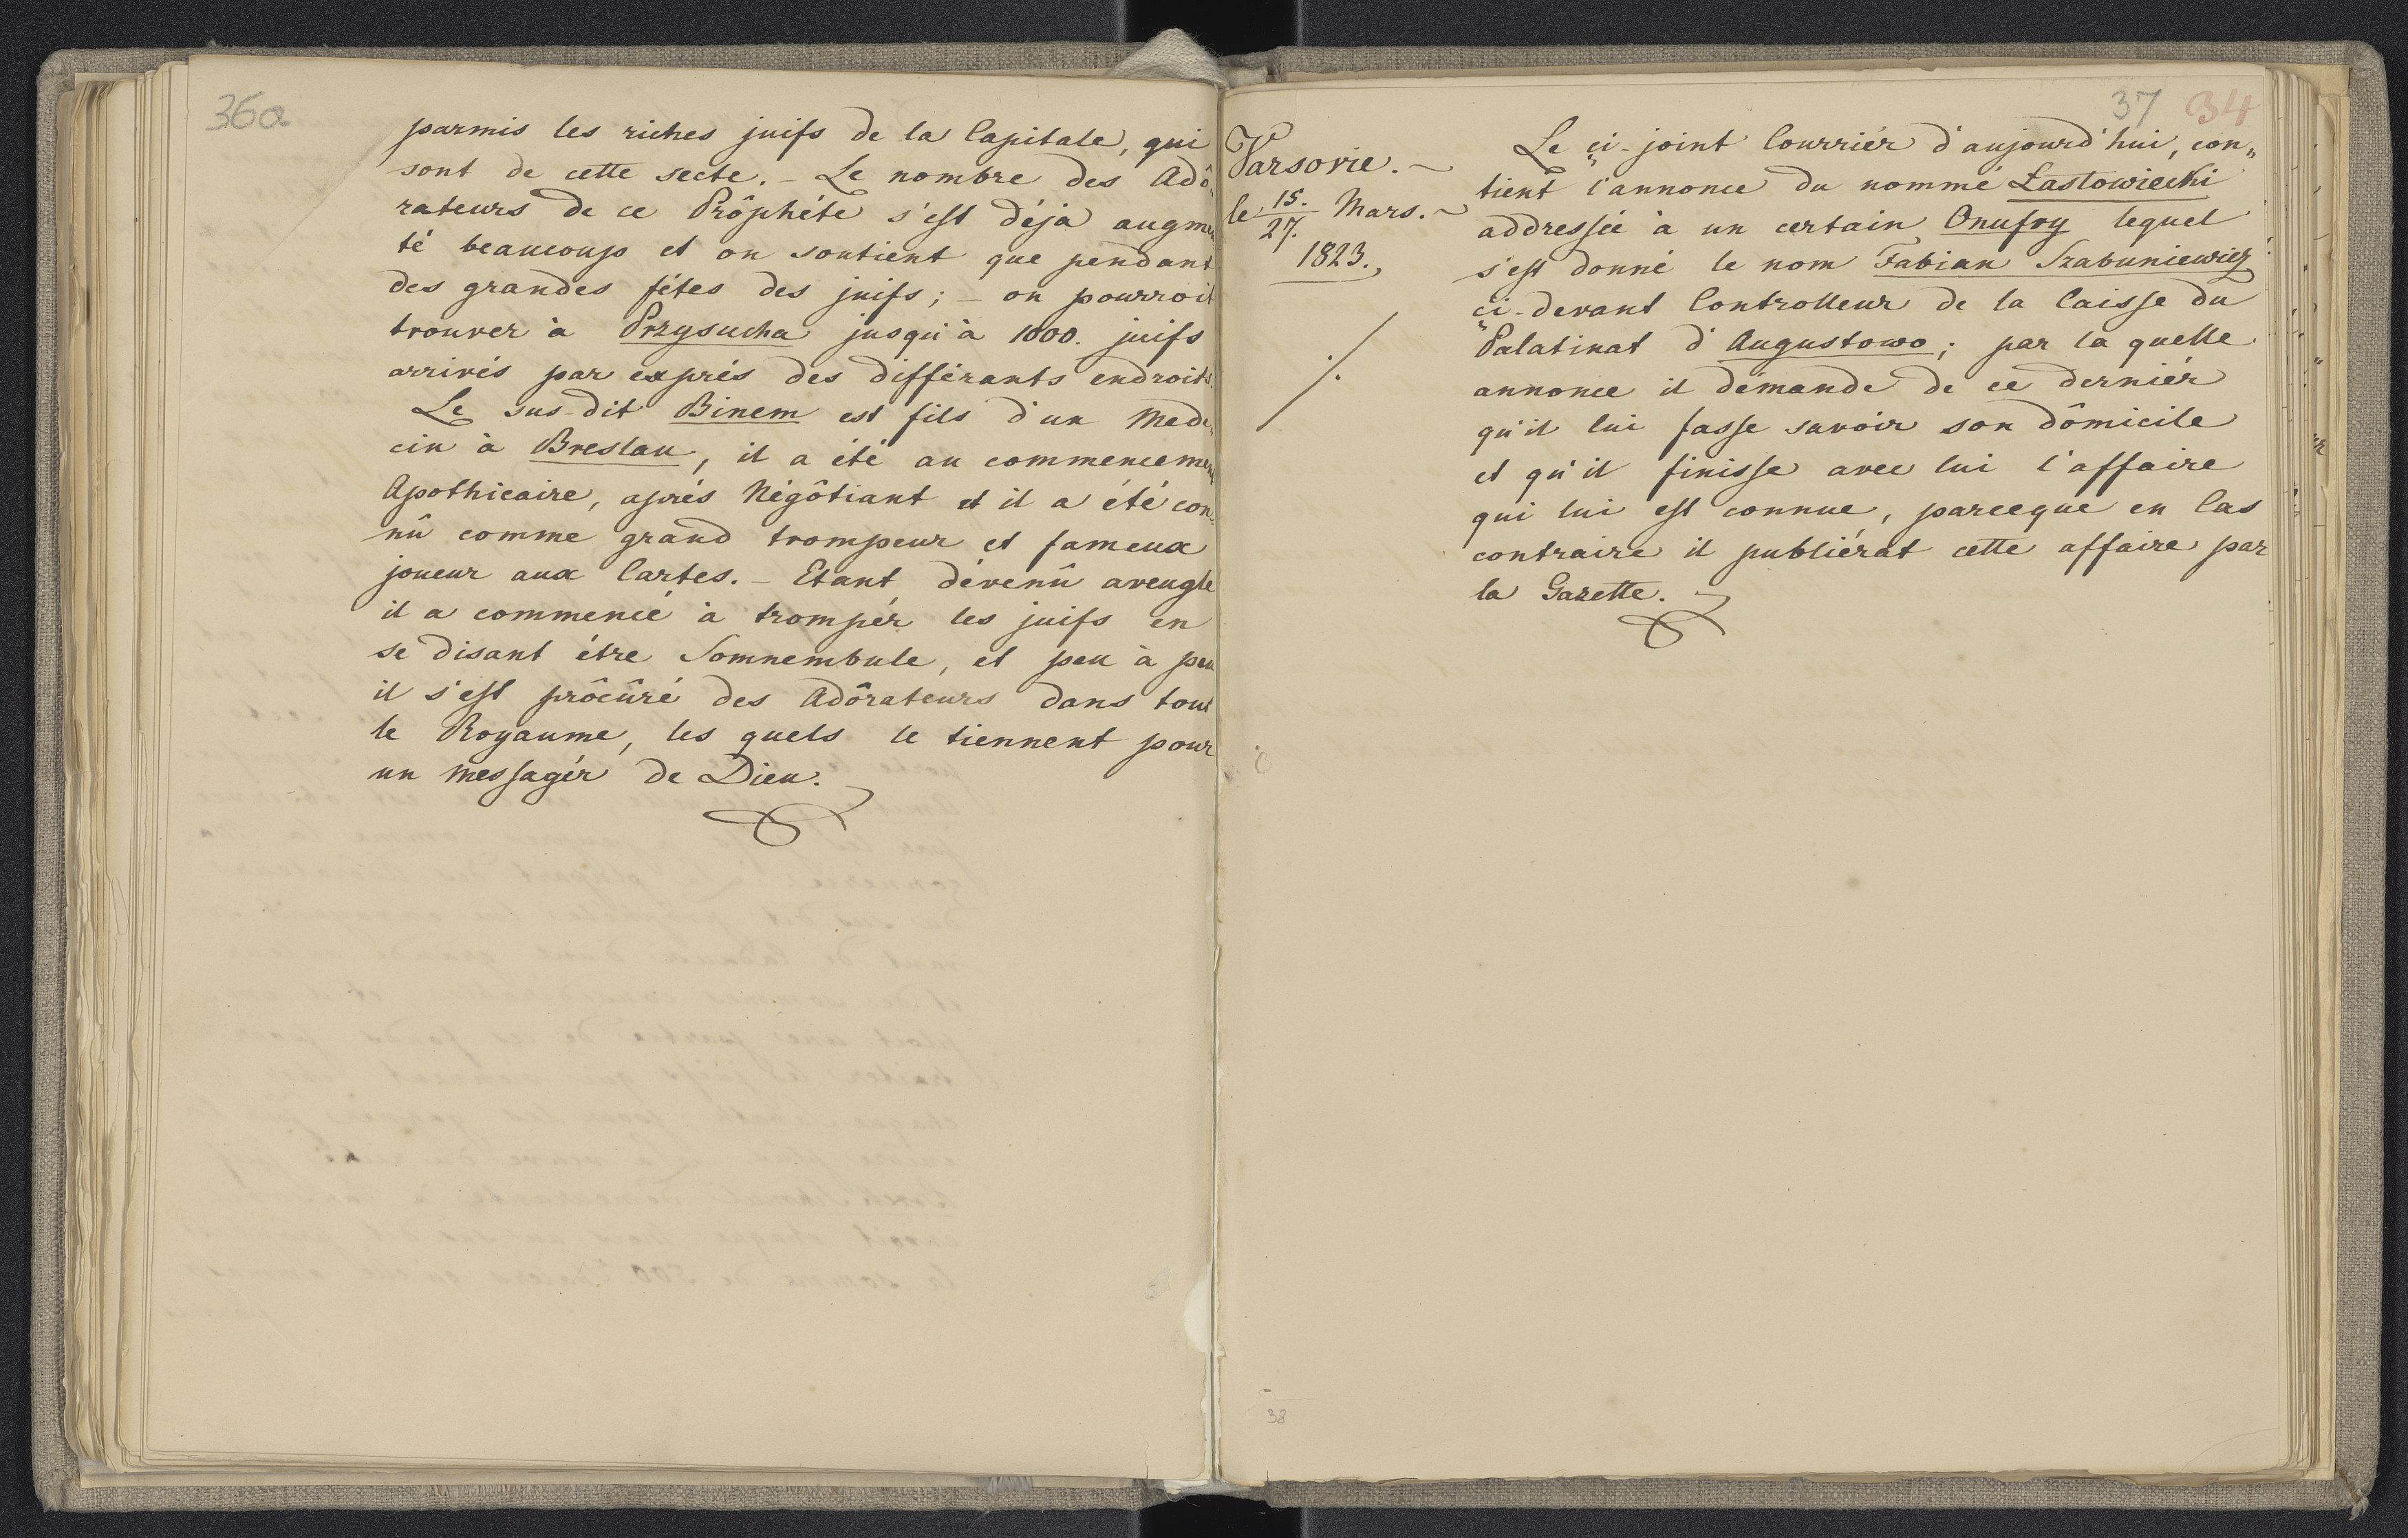 36a
parmis les riches juifs de la Capitale, qui
sont de cette secte. – Le nombre des Adô„
rateurs de ce Prôphéte s'est déja augmen
té beaucoup et on soutient que pendant
des grandes fétes des juifs; – on pourroit
trouver à Przysucha jusqu'à 1000. juifs
arrivés par exprés des différants endroits.
Le sus-dit Binem est fils d'un Mede„
cin à Breslau, il a été au commencement
Apothicaire, aprés Négôtiant et il a été con„
nû comme grand trompeur et fameux
joueur aux Cartes. – Etant dévenû aveugle
il a commencé à trompér les juifs en
se disant étre Somnembule, et peu à peu
il s'est prôcûré des Adôrateurs dans tout
le Royaume, les quels le tiennent pour
un messagér de Dieu.
37 34
Varsovie. ~
le 15./27. Mars. ~
1823.,
Le ci-joint Courriér d'aujourd'hui, con„
tient l'annonce du nommé Łastowiecki
addressée à un certain Onufry lequel
s'est donné le nom Fabian Szabuniewicz
ci-devant Controlleur de la Caisse du
Palatinat d'Augustowo; par la quelle
annonce il démande de ce derniér
qu'il lui fasse savoir son dômicile
et qu'il finisse avec lui l'affaire
qui lui est connue, parceque en Cas
contraire il publiérat cette affaire par
la Gazette.
38